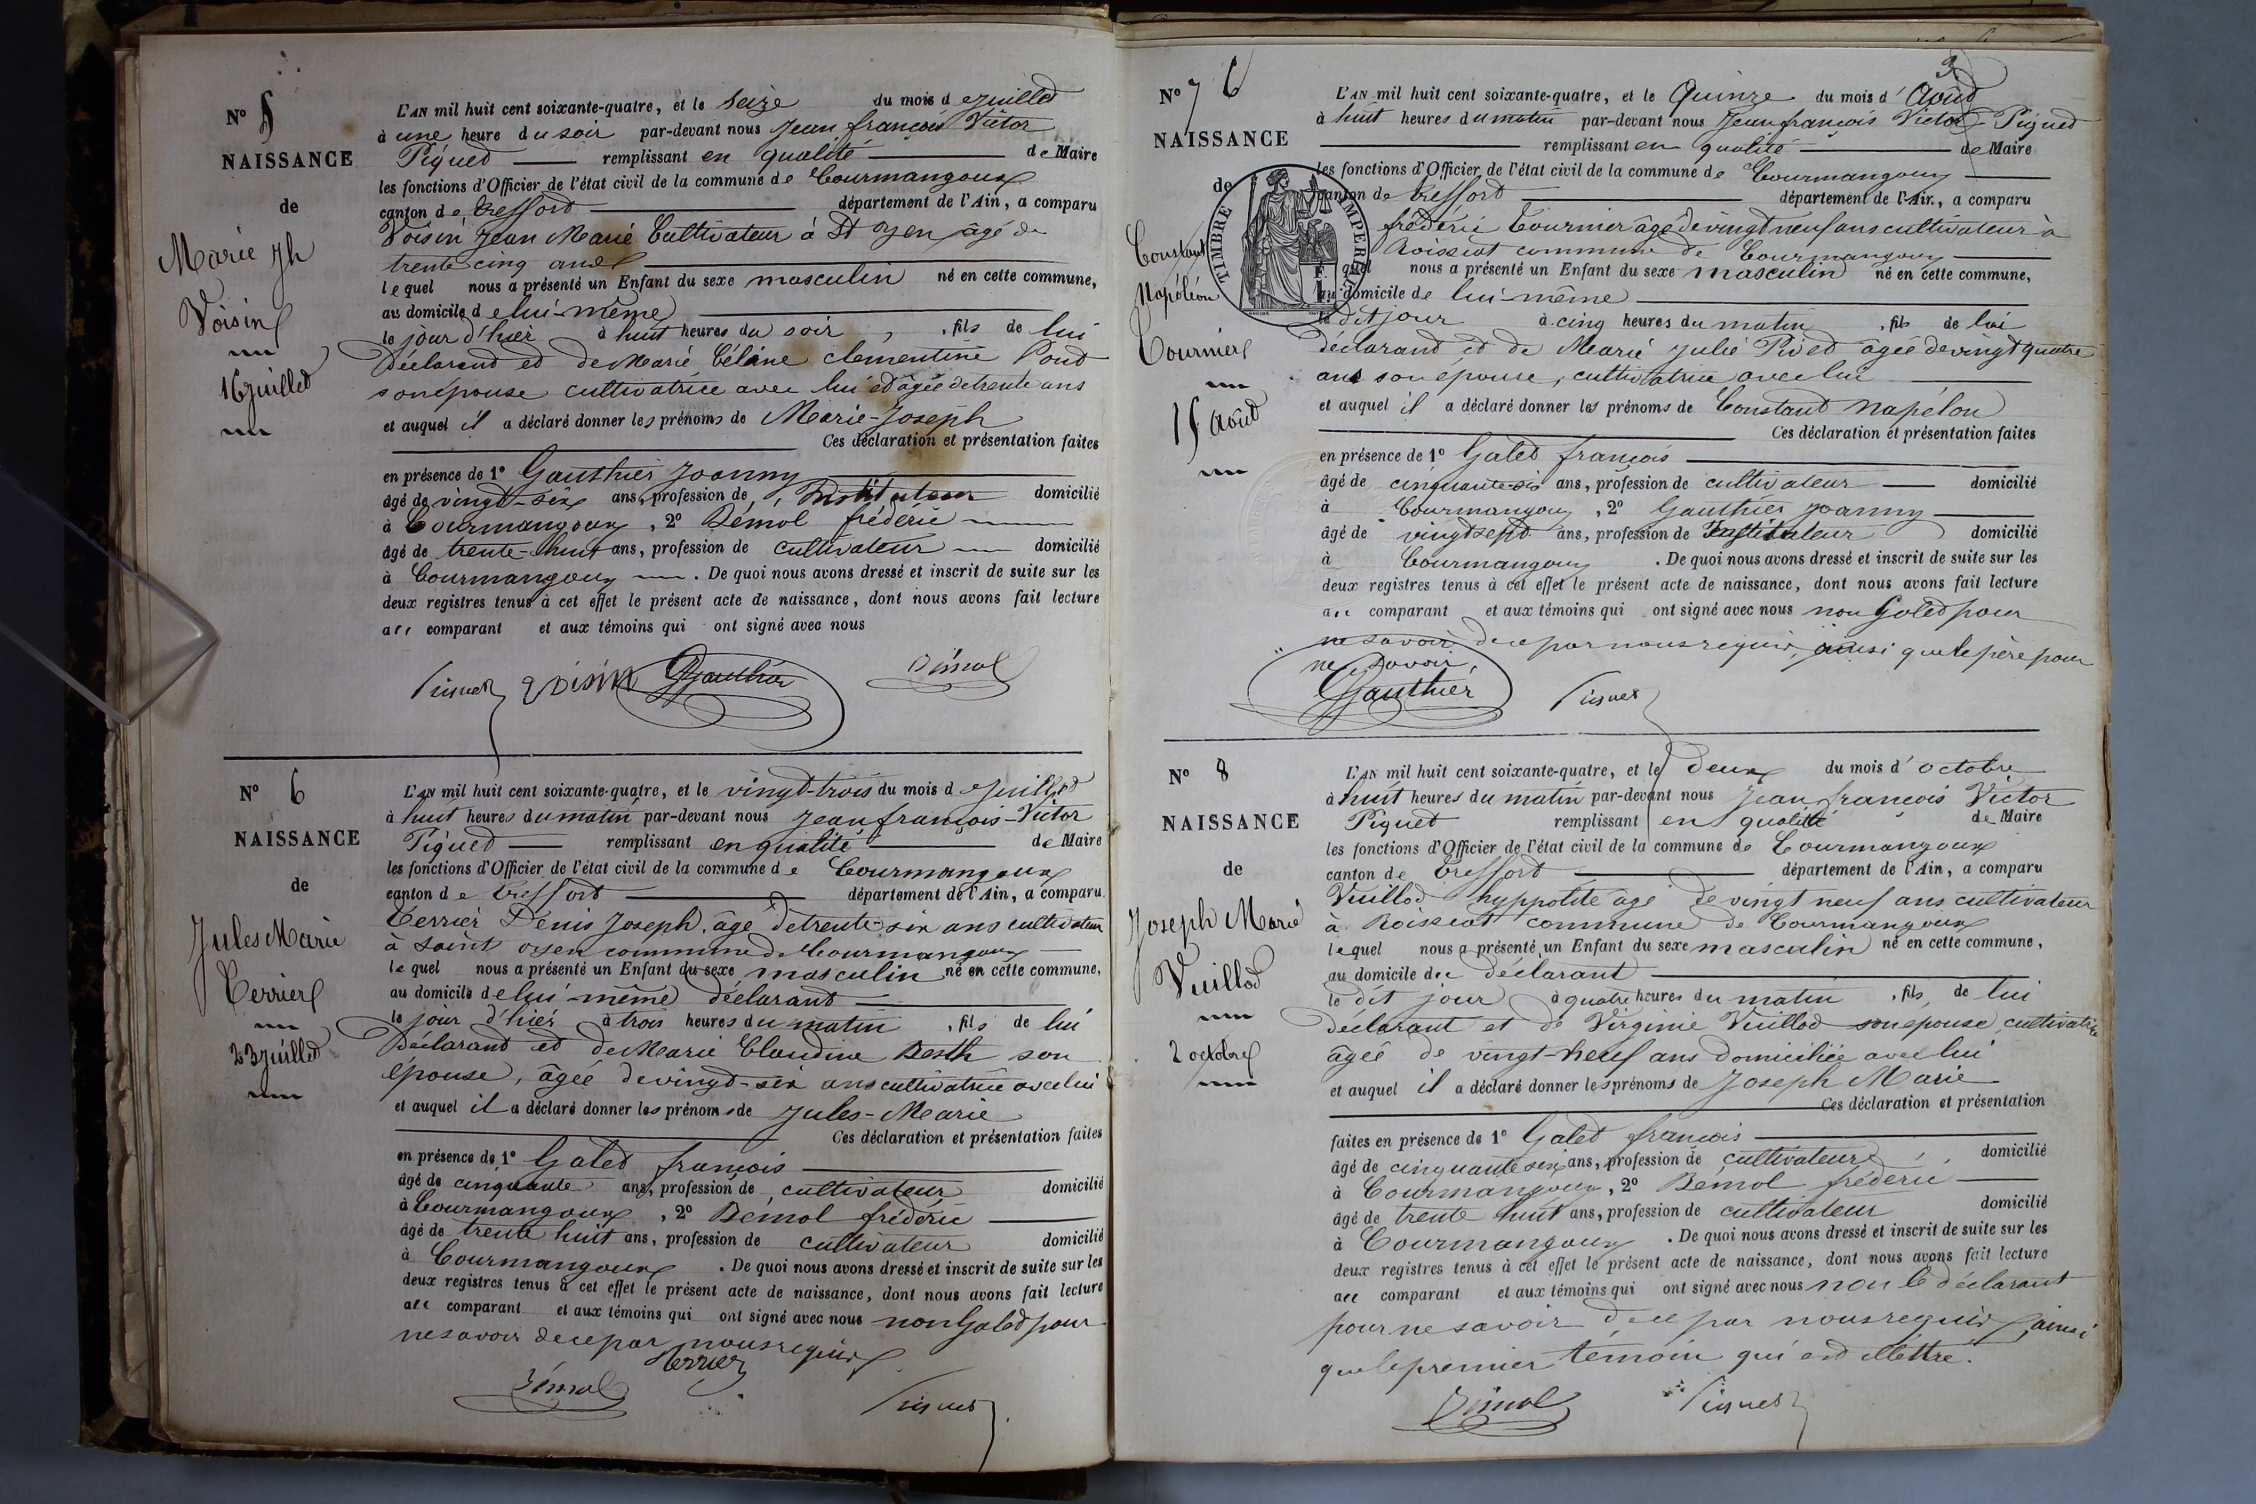 N° 5
NAISSANCE
de
Marie Jh
Voisin
16 juillet
L'AN mil huit cent soixante-quatre, et le seize du mois de juillet
à une heure du soir par-devant nous Jean françois Victor
Piquet remplissant en qualité de Maire
les fonctions d'Officier de l'état civil de la commune de Courmangoux
canton de Treffort département de l'Ain, a comparu
Voisin Jean Marie Cultivateur à St oyen âgé de
trente cinq ans
lequel nous a présenté un Enfant du sexe masculin né en cette commune,
au domicile de lui-même
le jour d'hier à huit heures du soir, fils de lui
Déclarant et de Marie Céline clementine Pont
son épouse cultivatrice avec lui et âgée de trente ans
et auquel il a déclaré donner les prénoms de Marie-Joseph
Ces déclaration et présentation faites
en présence de 1° Gauthier Joanny
âgé de vingt-six ans, profession de Instituteur domicilié
à Courmangoux, 2° Démol frédéric
âgé de trente-huit ans, profession de cultivateur domicilié
à Courmangoux. De quoi nous avons dressé et inscrit de suite sur les
deux registres tenus à cet effet le présent acte de naissance, dont nous avons fait lecture
au comparant et aux témoins qui ont signé avec nous
Piquet Voisin Gauthier Démol
N° 6
NAISSANCE
de
Jules Marie
Terrier
23 juillet
L'AN mil huit cent soixante-quatre, et le vingt-trois du mois de juillet
à huit heures du matin par-devant nous Jean françois-Victor
Piquet remplissant en qualité de Maire
les fonctions d'Officier de l'état civil de la commune de Courmangoux
canton de Treffort département de l'Ain, a comparu
Terrier Dénis Joseph, âgé de trente-six ans cultivateur
à saint oyen commune de Courmangoux
lequel nous a présenté un Enfant du sexe masculin né en cette commune,
au domicile de lui-même déclarant
le jour d'hier à trois heures du matin, fils de lui
Déclarant et de Marie Claudine son
épouse, âgée de vingt-six ans cultivatrice avec lui
et auquel il a déclaré donner les prénoms de Jules-Marie
Ces déclaration et présentation faites
en présence de 1° Galet françois
âgé de cinquante ans, profession de cultivateur domicilié
à Courmangoux, 2° Demol frédéric
âgé de trente huit ans, profession de cultivateur domicilié
à Courmangoux. De quoi nous avons dressé et inscrit de suite sur les
deux registres tenus à cet effet le présent acte de naissance, dont nous avons fait lecture
au comparant et aux témoins qui ont signé avec nous non Galet pour
ne savoir de ce par nous requis
Terrier
Démol Piquet
3
N° 7 6
NAISSANCE
de
TIMBRE IMPERIAL
Constant
Napoléon
Tournier
15 Août
L'AN mil huit cent soixante-quatre, et le Quinze du mois d'Août
à huit heures du matin par-devant nous Jean françois Victor Piquet
remplissant en qualité de Maire
les fonctions d'Officier de l'état civil de la commune de Courmangoux
canton de Treffort département de l'Ain, a comparu
frédéric Tournier âgé de vingt neuf ans cultivateur à
Roissiat commune de Courmangoux
lequel nous a présenté un Enfant du sexe masculin né en cette commune,
au domicile de lui-même
le dit jour à cinq heures du matin, fils de lui
déclarant et de Marie Julie Pivet âgée de vingt quatre
ans son épouse, cultivatrice avec lui
et auquel il a déclaré donner les prénoms de Constant Napélon
Ces déclaration et présentation faites
en présence de 1° Galet françois
âgé de cinquante-six ans, profession de cultivateur domicilié
à Courmangoux, 2° Gauthier Joanny
âgé de vingt sept ans, profession de Instituteur domicilié
à Courmangoux. De quoi nous avons dressé et inscrit de suite sur les
deux registres tenus à cet effet le présent acte de naissance, dont nous avons fait lecture
au comparant et aux témoins qui ont signé avec nous non Galet pour
ne savoir de ce par nous requis, ainsi que le père pour
ne savoir,
Gauthier Piquet
N° 8
NAISSANCE
de
Joseph Marie
Vuillod
2 octobre
L'AN mil huit cent soixante-quatre, et le deux du mois d'octobre
à huit heures du matin par-devant nous Jean françois Victor
Piquet remplissant en qualité de Maire
les fonctions d'Officier de l'état civil de la commune de Courmangoux
canton de Treffort département de l'Ain, a comparu
Vuillod hyppolite âgé de vingt neuf ans cultivateur
à Roissiat commune de Courmangoux
lequel nous a présenté un Enfant du sexe masculin né en cette commune,
au domicile de déclarant
le dit jour à quatre heures du matin, fils de lui
déclarant et de Virginie Vuillod son épouse cultivatrice
âgée de vingt-neuf ans domiciliée avec lui
et auquel il a déclaré donner les prénoms de Joseph Marie
Ces déclaration et présentation
faites en présence de 1° Galet françois
âgé de cinquante six ans, profession de cultivateur domicilié
à Courmangoux, 2° Démol frédéric
âgé de trente huit ans, profession de cultivateur domicilié
à Courmangoux. De quoi nous avons dressé et inscrit de suite sur les
deux registres tenus à cet effet le présent acte de naissance, dont nous avons fait lecture
au comparant et aux témoins qui ont signé avec nous non le déclarant
pour ne savoir de ce par nous requis, ainsi
que le premier témoin qui est illettré.
Démol Piquet